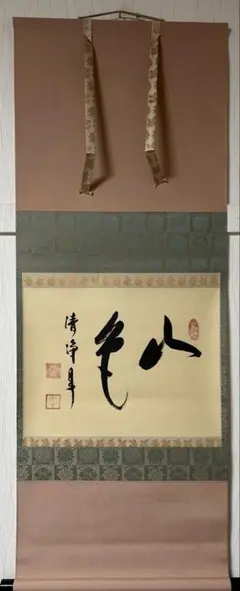 山色
清浄身